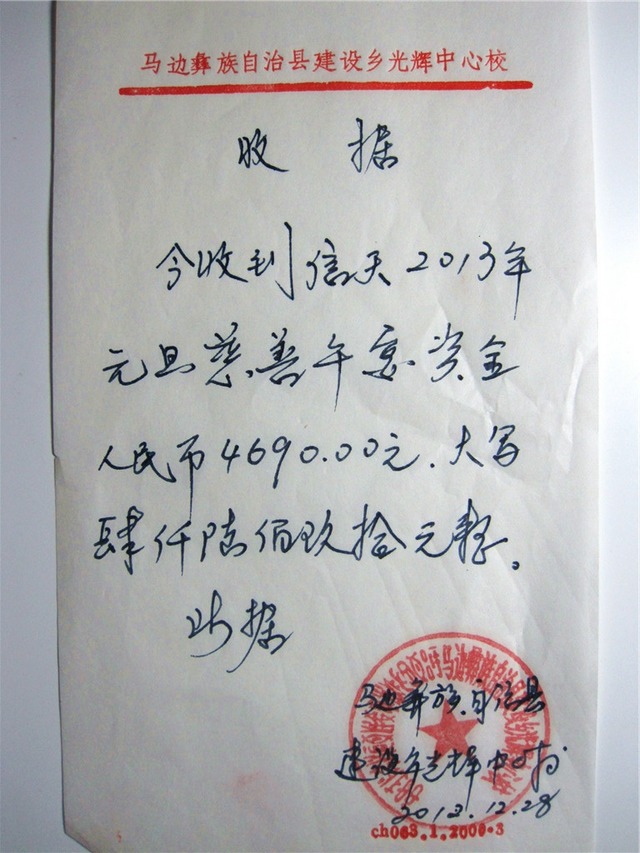 马边彝族自治县建设乡光辉中心校
收据
今收到信天2013年
元旦慈善午宴资金
人民币4690.00元.大写
肆仟陆佰玖拾元整。
此据
马边彝族自治县
建设乡光辉中心校
2012.12.28
ch063.1.2000.3